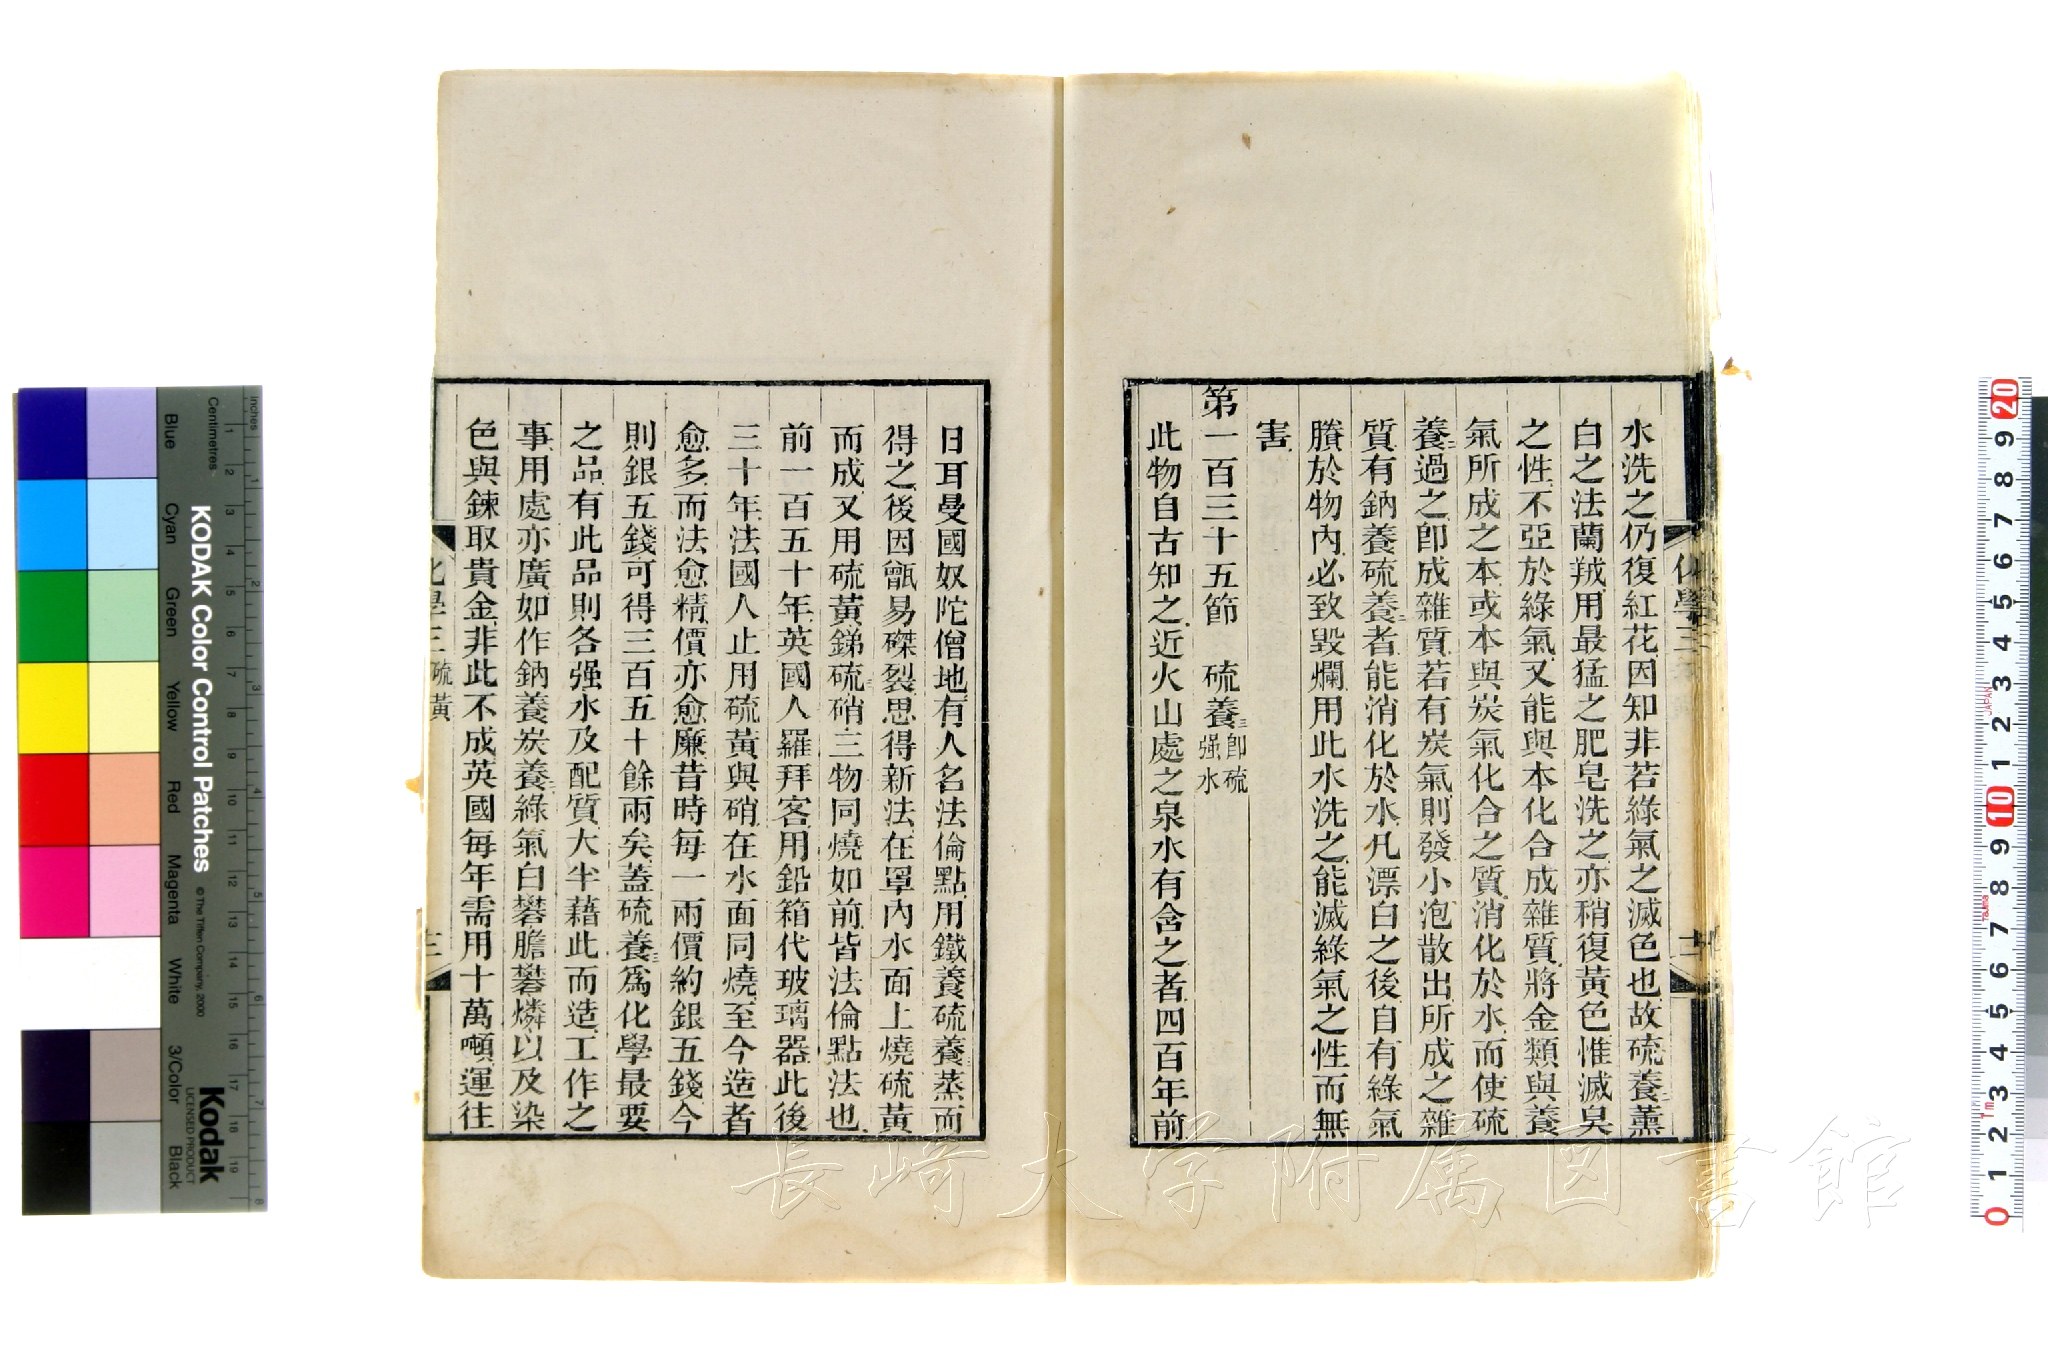 水洗之仍復紅花因知非若綠氣之滅色也故硫養薰
白之法蘭羢用最猛之肥皂洗之亦稍復黃色惟滅臭
之性不亞於綠氣又能與本化合成雜質將金類與養
氣所成之本或本與炭氣化合之質消化於水而使硫
養過之即成雜質若有炭氣則發小泡散出所成之雜
質有鈉養硫養者能消化於水凡漂白之後自有綠氣
賸於物內必致毀爛用此水洗之能滅綠氣之性而無
害
第一百三十五節 硫養三即硫强水
此物自古知之近火山處之泉水有含之者四百年前
化學三
日耳曼國奴陀僧地有人名法倫點用鐵養硫養蒸而
得之後因甑易磔裂思得新法在罩內水面上燒硫黃
而成又用硫黃銻硫硝三物同燒如前皆法倫點法也
前一百五十年英國人羅拜客用鉛箱代玻璃器此後
三十年法國人止用硫黃與硝在水面同燒至今造者
愈多而法愈精價亦愈廉昔時每一兩價約銀五錢今
則銀五錢可得三百五十餘兩矣蓋硫養三爲化學最要
之品有此品則各强水及配質大半藉此而造工作之
事用處亦廣如作鈉養炭養綠氣白礬膽礬燐以及染
色與鍊取貴金非此不成英國每年需用十萬噸運往
化學三 硫黃
三
KODAK Color Control Patches
© The Tiffen Company, 2000
Kodak
LICENSED PRODUCT
inches
Centimetres
Blue
Cyan
Green
Yellow
Red
Magenta
White
3/Color
Black
JAPAN
長崎大学附属図書館